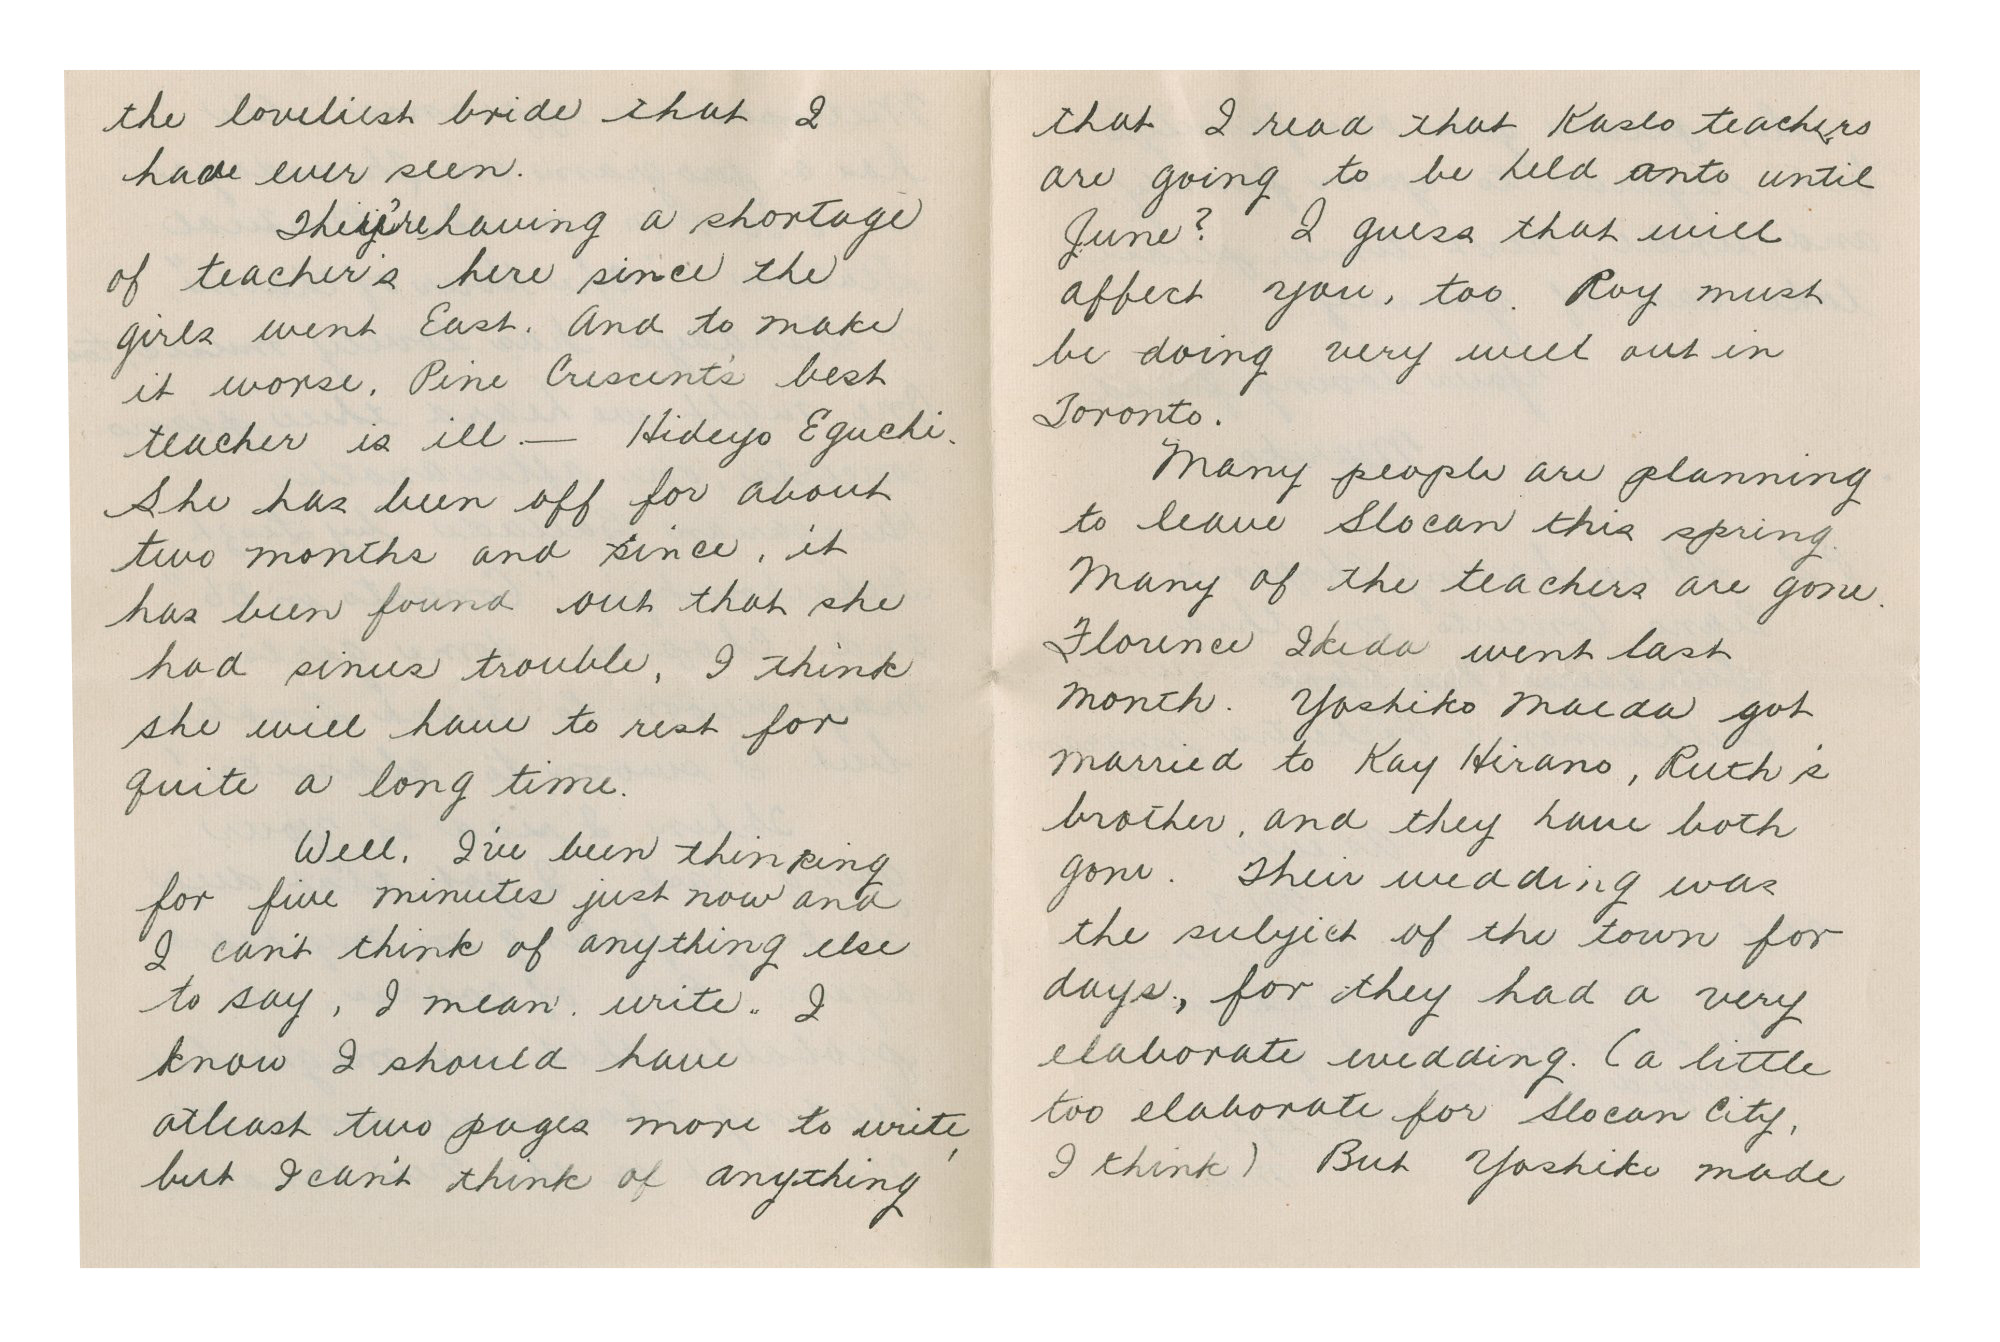 the loveliest bride that I
have ever seen.
They're having a shortage
of teacher's here since the
girls went East. And to make
it worse, Pine Crescent's best
teacher is ill. — Hideyo Eguchi.
She has been off for about
two months and since, it
has been found out that she
had sinus trouble, I think
she will have to rest for
quite a long time.
Well, I've been thinking
for five minutes just now and
I can't think of anything else
to say, I mean, write. I
know I should have
atleast two pages more to write,
but I can't think of anything
that I read that Kaslo teachers
are going to be held onto until
June? I guess that will
affect you, too. Roy must
be doing very well out in
Toronto.
Many people are planning
to leave Slocan this spring.
Many of the teachers are gone.
Florence Ikeda went last
month. Yoshiko Maeda got
married to Kay Hirano, Ruth's
brother, and they have both
gone. Their wedding was
the subject of the town for
days, for they had a very
elaborate wedding. (a little
too elaborate for Slocan City,
I think) But Yoshiko made